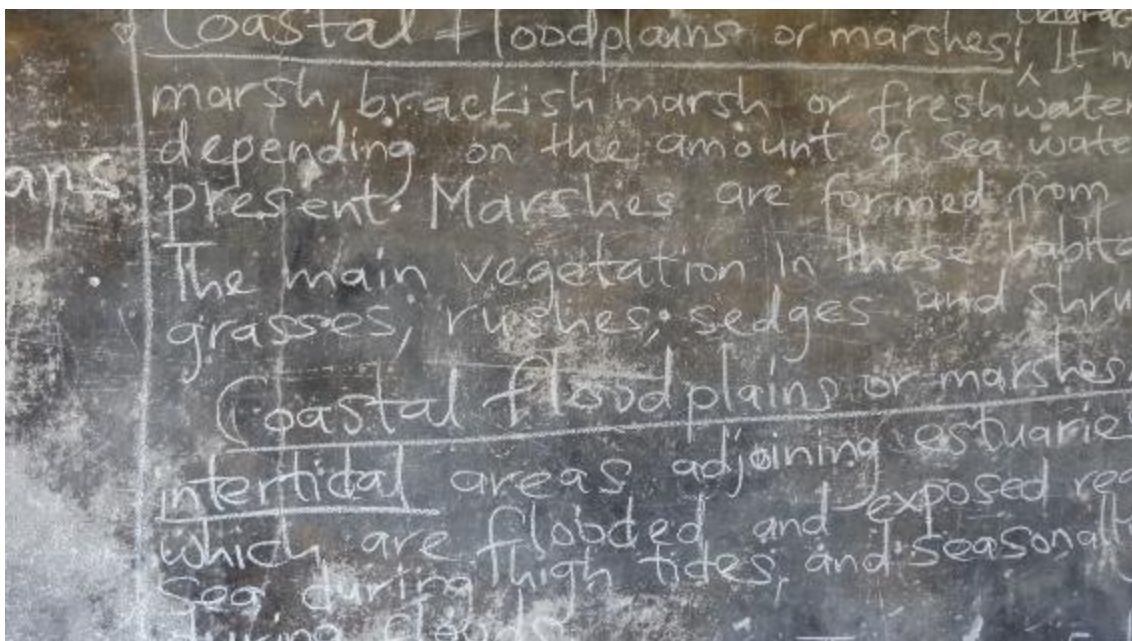 Coastal floodplains or marshes! It
marsh, brackish marsh or freshwater
depending on the amount of sea wate
aps
present. Marshes are formed from
The main vegetation in these habita
grasses, rushes, sedges and shru
Coastal floodplains or marshes
intertidal areas adjoining estuarie
which are flooded and exposed reg
Sea during high tides, and seasonally
during floods